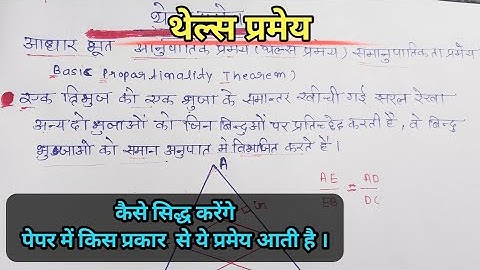 थेल्स प्रमेय
आधार भूत आनुपातिक प्रमेय (थेल्स प्रमेय) समानुपातिकता प्रमेय
Basic Proportionality Theorem)
एक त्रिभुज की एक भुजा के समान्तर खींची गई सरल रेखा
अन्य दो भुजाओं को जिन बिन्दुओं पर प्रतिच्छेद करती है, वे बिन्दु
भुजाओं को समान अनुपात में विभाजित करते हैं।
A
AE/EB = AD/DC
कैसे सिद्ध करेंगे
पेपर में किस प्रकार से ये प्रमेय आती है ।